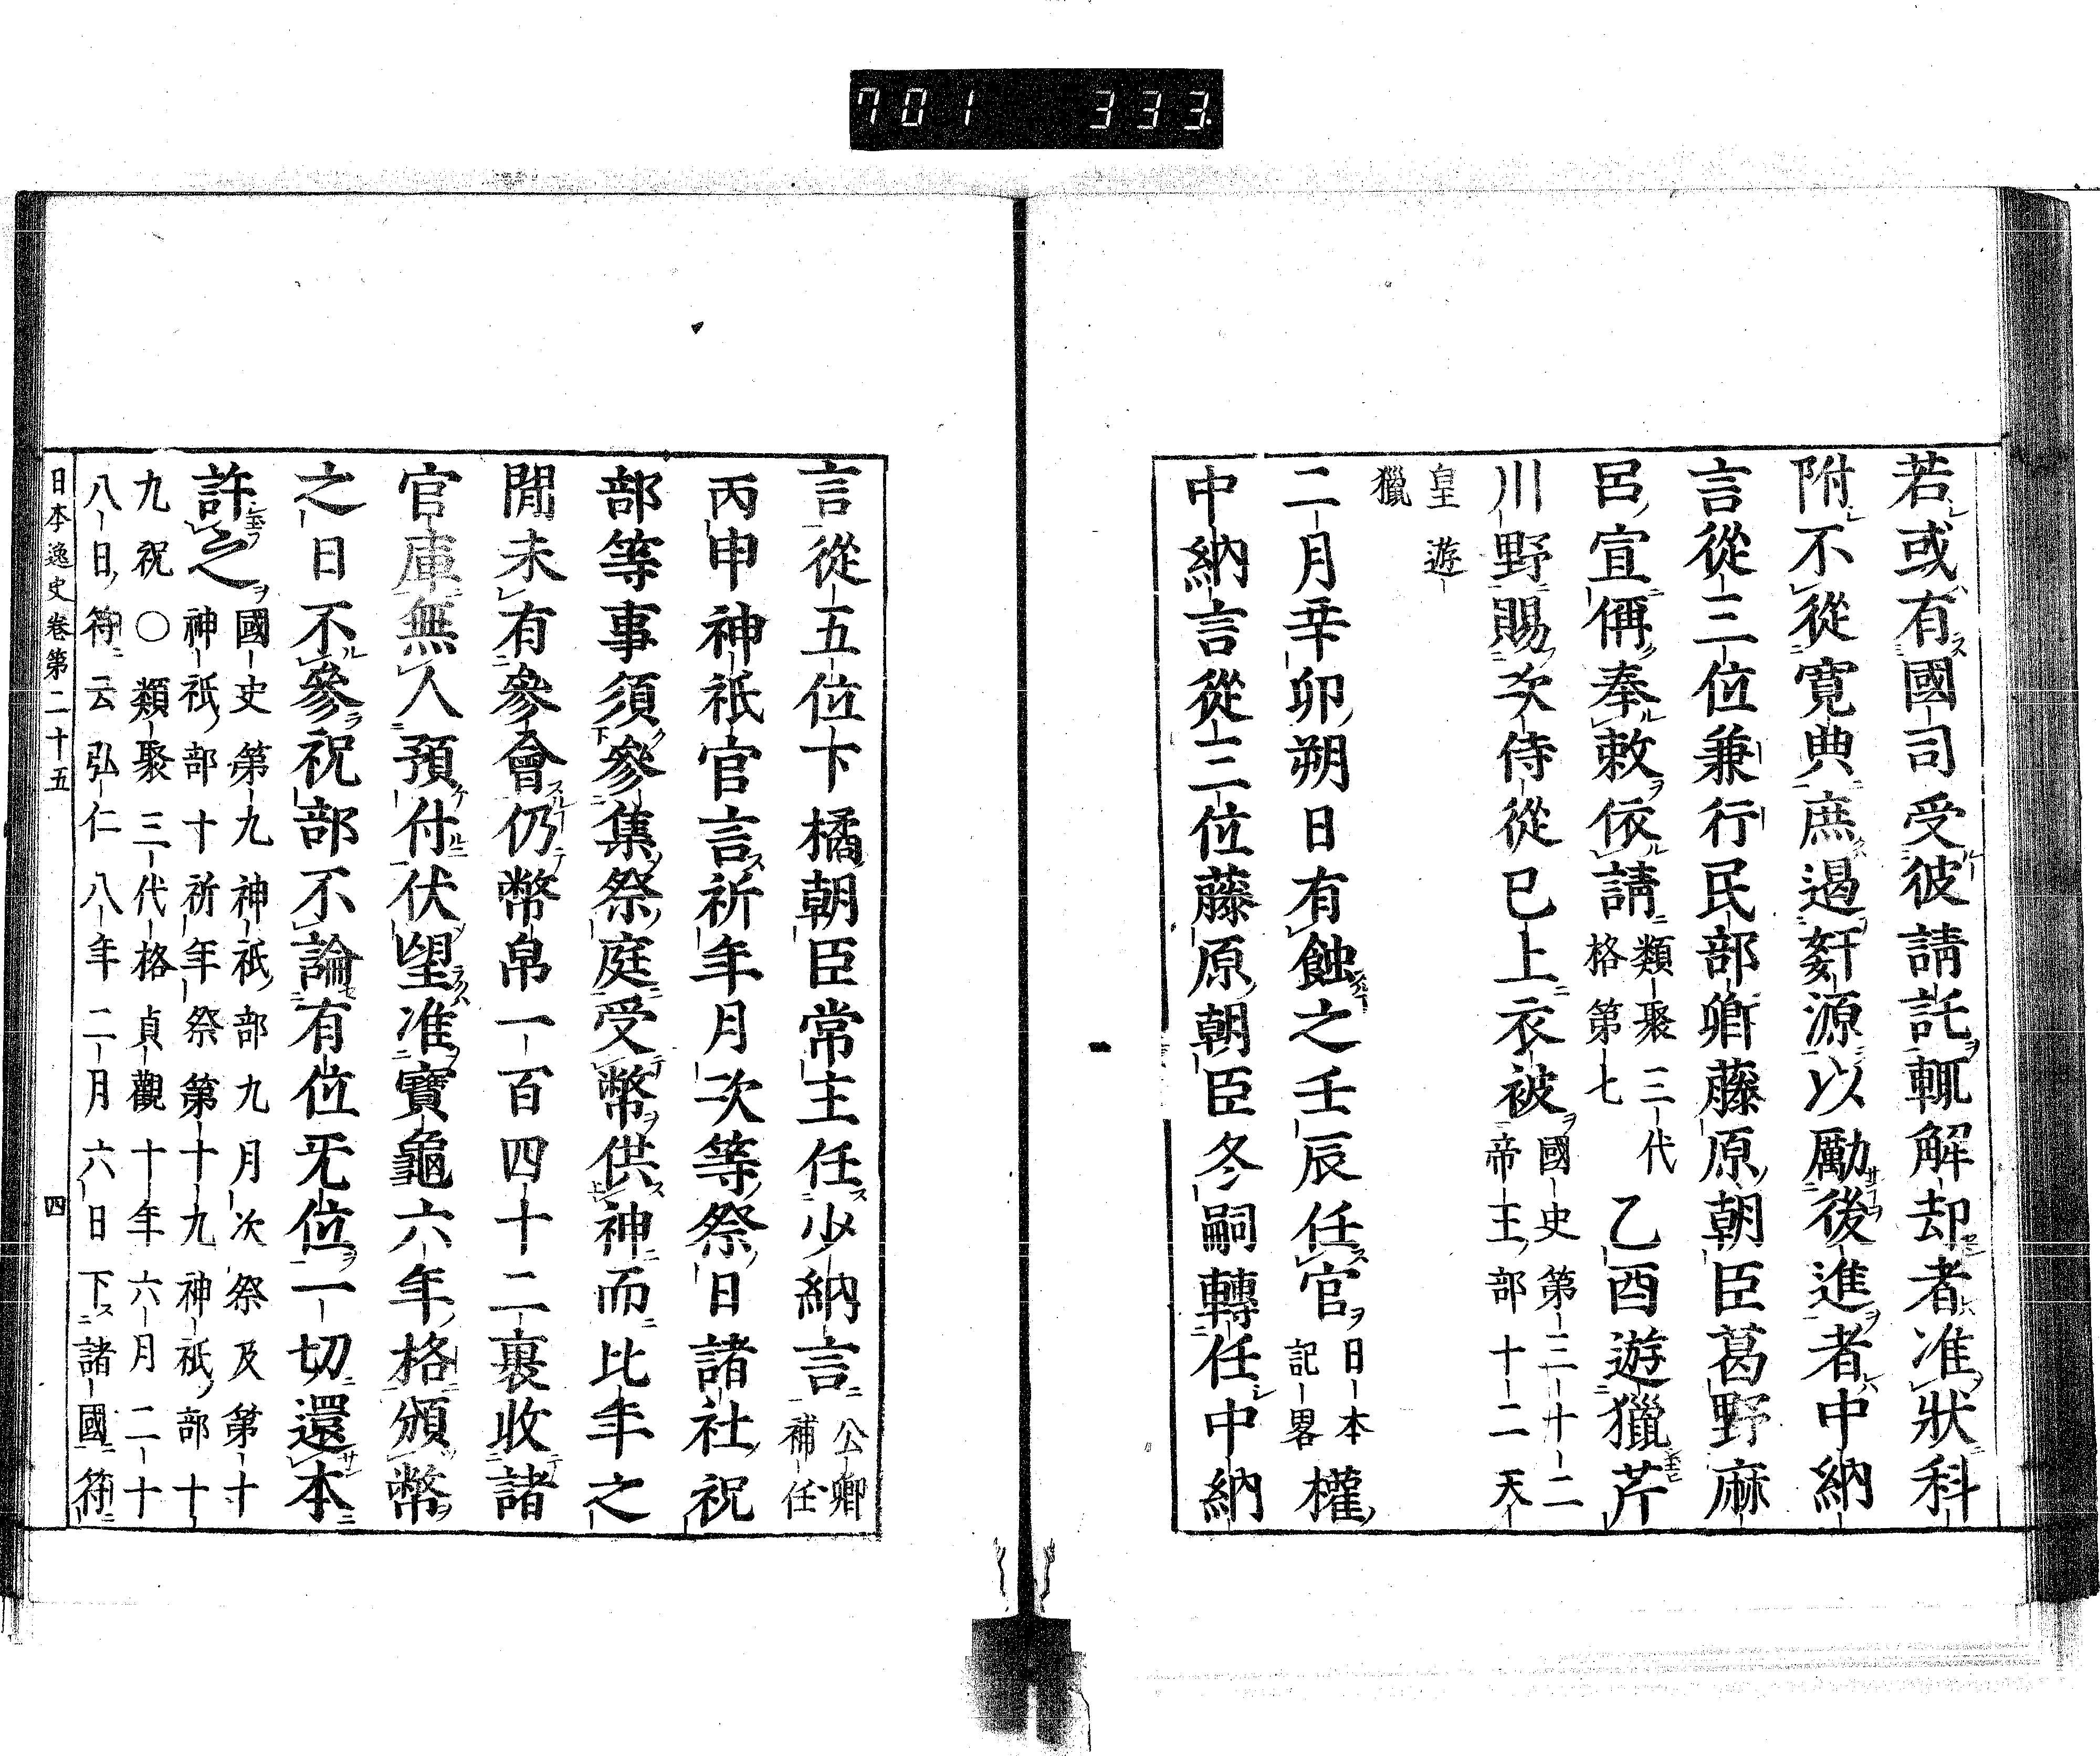 701 333
若或有國司受彼請託輙解却者准狀科
附不從寛典庶遏姧源以勵後進者中納
言從三位兼行民部卿藤原朝臣葛野麻
呂宣偁奉敕依請類聚三代格第七乙酉遊獵芹
川野賜次侍從已上衣被國史第三十二帝王部十二天
皇遊獵
二月辛卯朔日有蝕之壬辰任官日本記畧權
中納言從三位藤原朝臣冬嗣轉任中納
言從五位下橘朝臣常主任少納言公卿補任
丙申神祇官言祈年月次等祭日諸社祝
部等事須參集祭庭受幣供神而比年之
間未有參會仍幣帛一百四十二裹收諸
官庫無人預付伏望准寶龜六年格頒幣
之日不參祝部不論有位无位一切還本
許之國史第九神祇部九月次祭及第十
神祇部十祈年祭第十九神祇部十
九祝〇類聚三代格貞觀十年六月二十
八日符云弘仁八年二月六日下諸國符
日本逸史卷第二十五 四